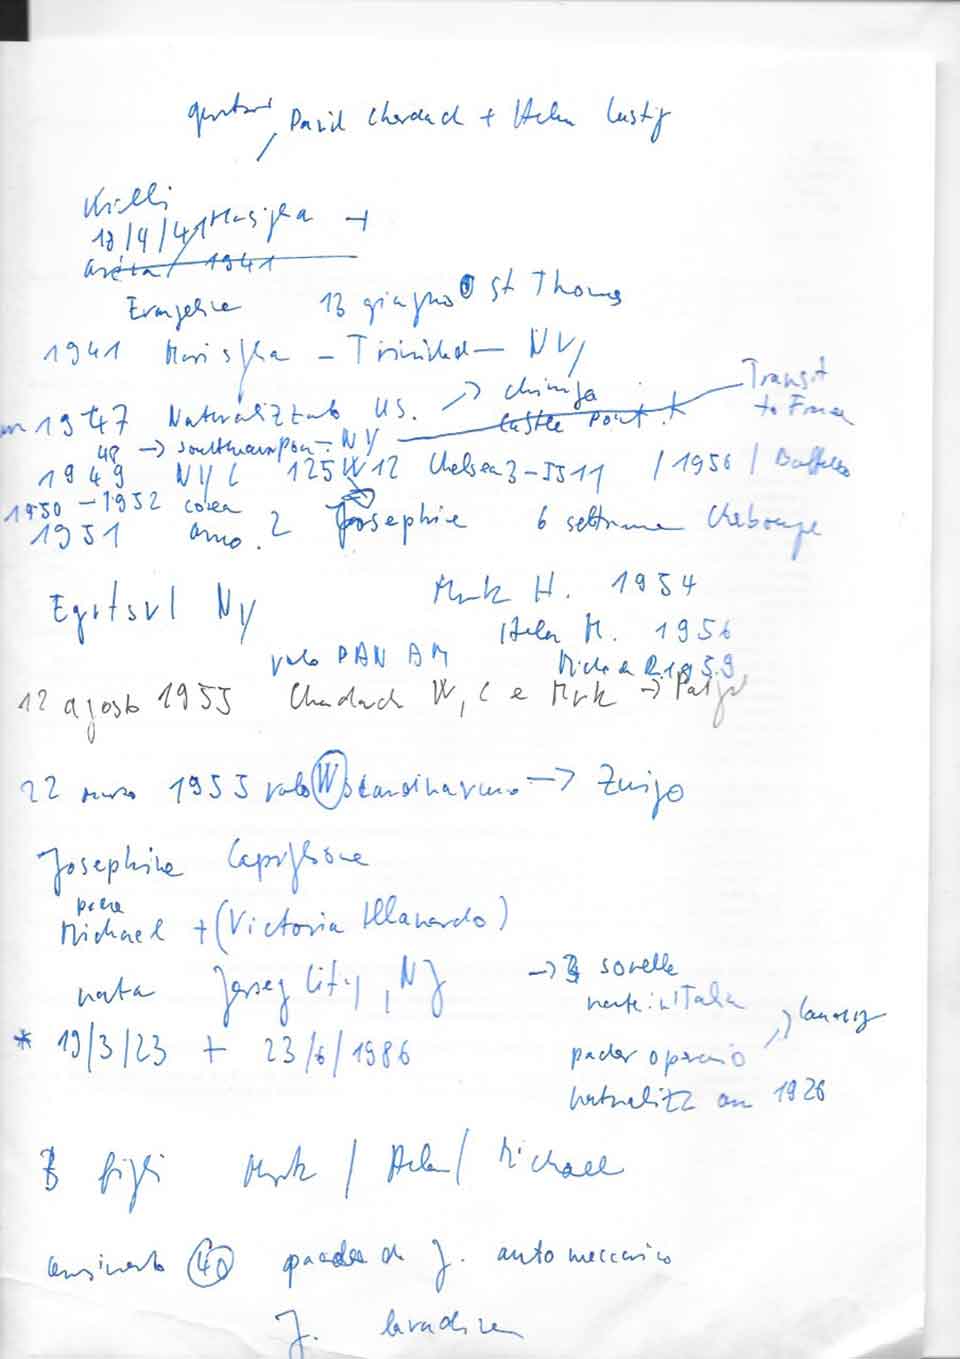 David Chardach + Helen Lustig
18/4/41 Marisfka →
1941
Evangeline 13 giugno St Thomas
1941 Marisfka - Trinidad - NY
1947 Naturalizzato US. → chirurgo
Castle Point
Transit to France
48 → Southampton - NY
1949 NYC 125 W 12 Chelsea 3-5511 /1956/ Buffalo
1950-1952 corea
1951 anno 2 Josephine 6 settimane Cherbourg
NY
Mark H. 1954
Helen M. 1956
volo PAN AM
Michael R 1959
12 agosto 1955 Chardack W, C e Mark → Parigi
22 marzo 1955 volo W Scandinavian → Zurigo
Josephine Capriglione
padre
Michael + (Victoria Illanardo)
nata Jersey City, NJ
→ 3 sorelle
nate in Italia
* 19/3/23 + 23/6/1986
padre operaio
naturalizz 1926
3 figli Mark / Helen / Michael
censimento 40 padre di J. auto meccanico
J.